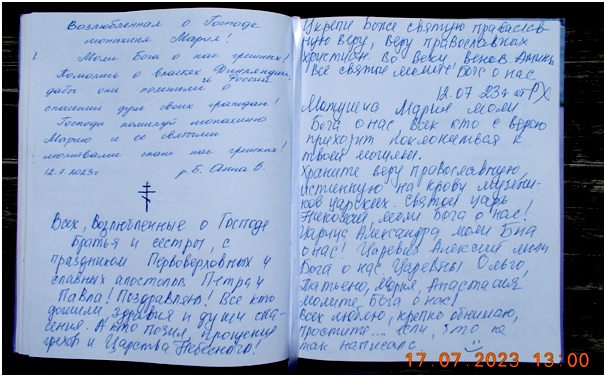 Возлюбленная о Господе
монахиня Мария!
Моли Бога о нас грешных!
Помолись о властях
и России
дабы они помнили о
спасении душ своих граждан!
Господи помилуй монахиню
Марию и ея святыми
молитвами спаси нас грешных!
12.7.2023г р.Б. Анна В.
Всех, возлюбленные о Господе
Братья и сестры, с
праздником Первоверховных и
славных апостолов Петра и
Павла! Поздравляю! Все кто
дошли, здравия и души спа-
сения. А кто позил, прощения
грехов и Царства Небесного!
Укрепи Боже святую православ-
ную веру, веру православных
христиан во веки веков. Аминь
Все святые молите Бога о нас
12.07.23г от РХ
Матушка Мария моли
Бога о нас всех кто с верою
приходит поклониться к
твоей могиле.
Храните веру православную,
истенную на крови мучени-
ков царских. Святой царь
Николай моли Бога о нас!
Царица Александра моли Бога
о нас! Царевич Алексий моли
Бога о нас. Царевны Ольга,
Татьяна, Мария, Анастасия
молите Бога о нас!
Всех люблю, крепко обнимаю,
простите... если, что не
так написала
17.07.2023 13:00